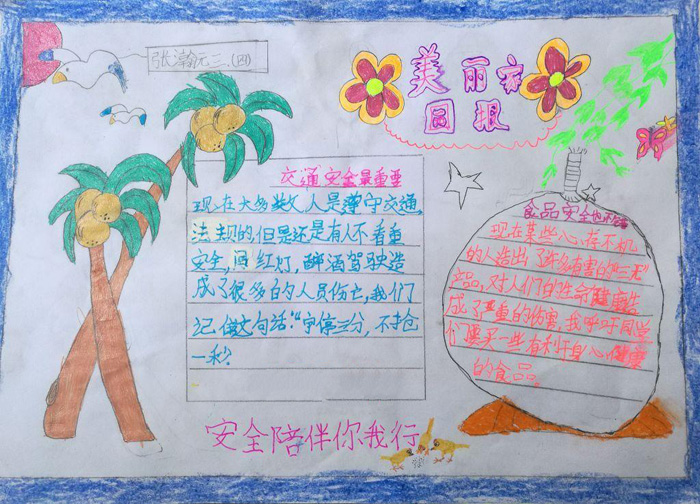 张瀚元三.(四)
美丽家园报
交通安全最重要
现在大多数人是遵守交通
法规的但是还是有人不看重
安全,闯红灯,醉酒驾驶造
成了很多的人员伤亡,我们
记做这句话:“宁停三分,不抢
一秒?
食品安全也
现在某些心存不轨
的人造出了许多有害的“三无”
产品,对人们的生命健康造
成了严重的伤害,我呼吁同学
们要买一些有利于身心健康
的食品。
安全陪伴你我行